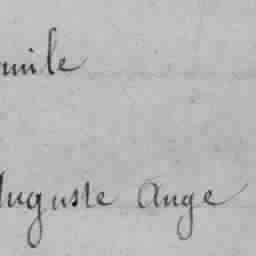 mile
Auguste Ange